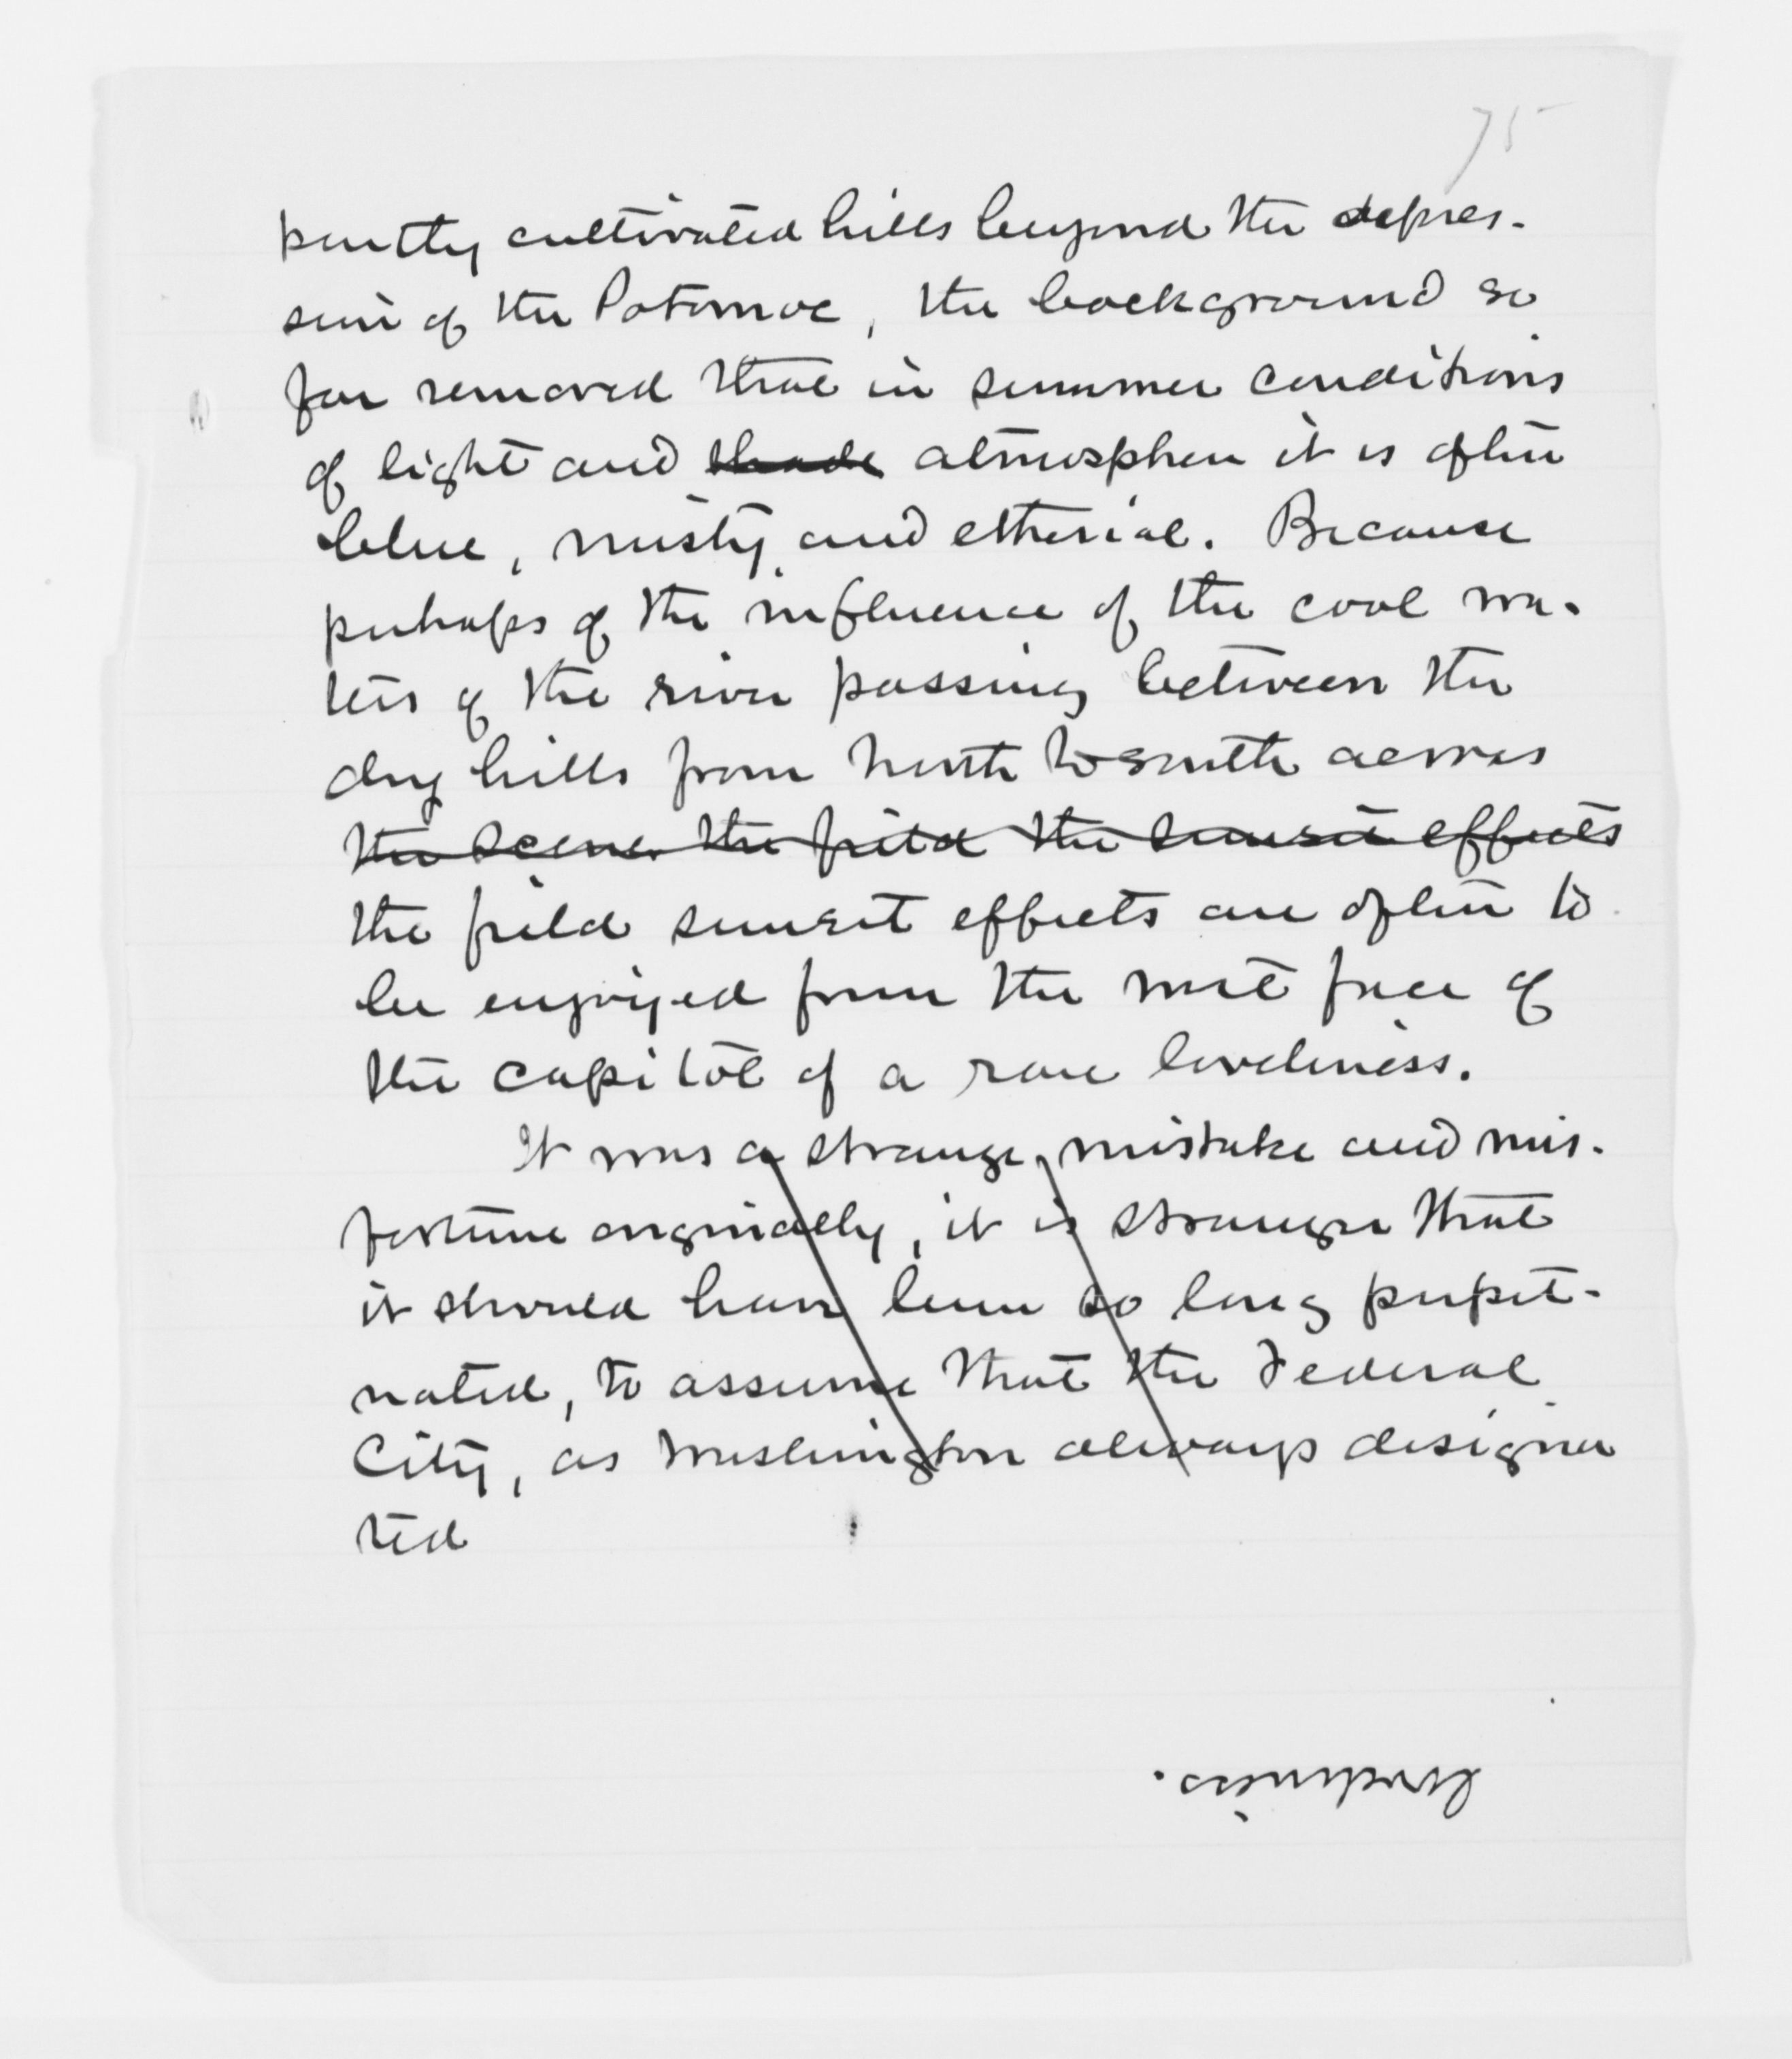 75
partly cultivated hills beyond the depres-
sion of the Potomac, the background so
far removed that in summer conditions
of light and shade atmosphere it is often
blue, misty and etherial. Because
perhaps of the influence of the cool wa-
ters of the river passing between the
dry hills from North to South across
the scene the field the sunset effects
the field sunset effects are often to
be enjoyed from the west face of
the capitol of a rare loveliness.
It was a strange, mistake and mis-
fortune originally, it is stranger that
it should have been so long perpet-
uated, to assume that the Federal
City, as Washington always designa
ted
loveliness.